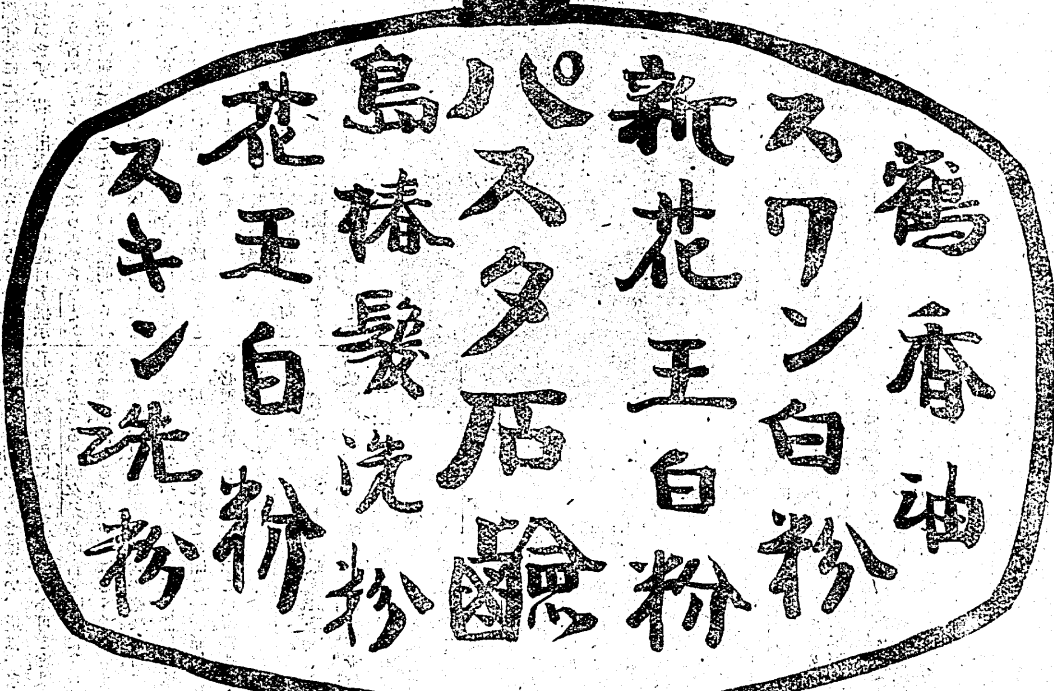 鶴香油
スワン白粉
新花王白粉
パスタ石鹼
島椿髮洗粉
花王白粉
スキン洗粉